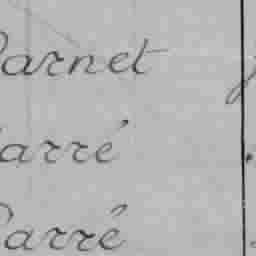 arnet
arré
arré